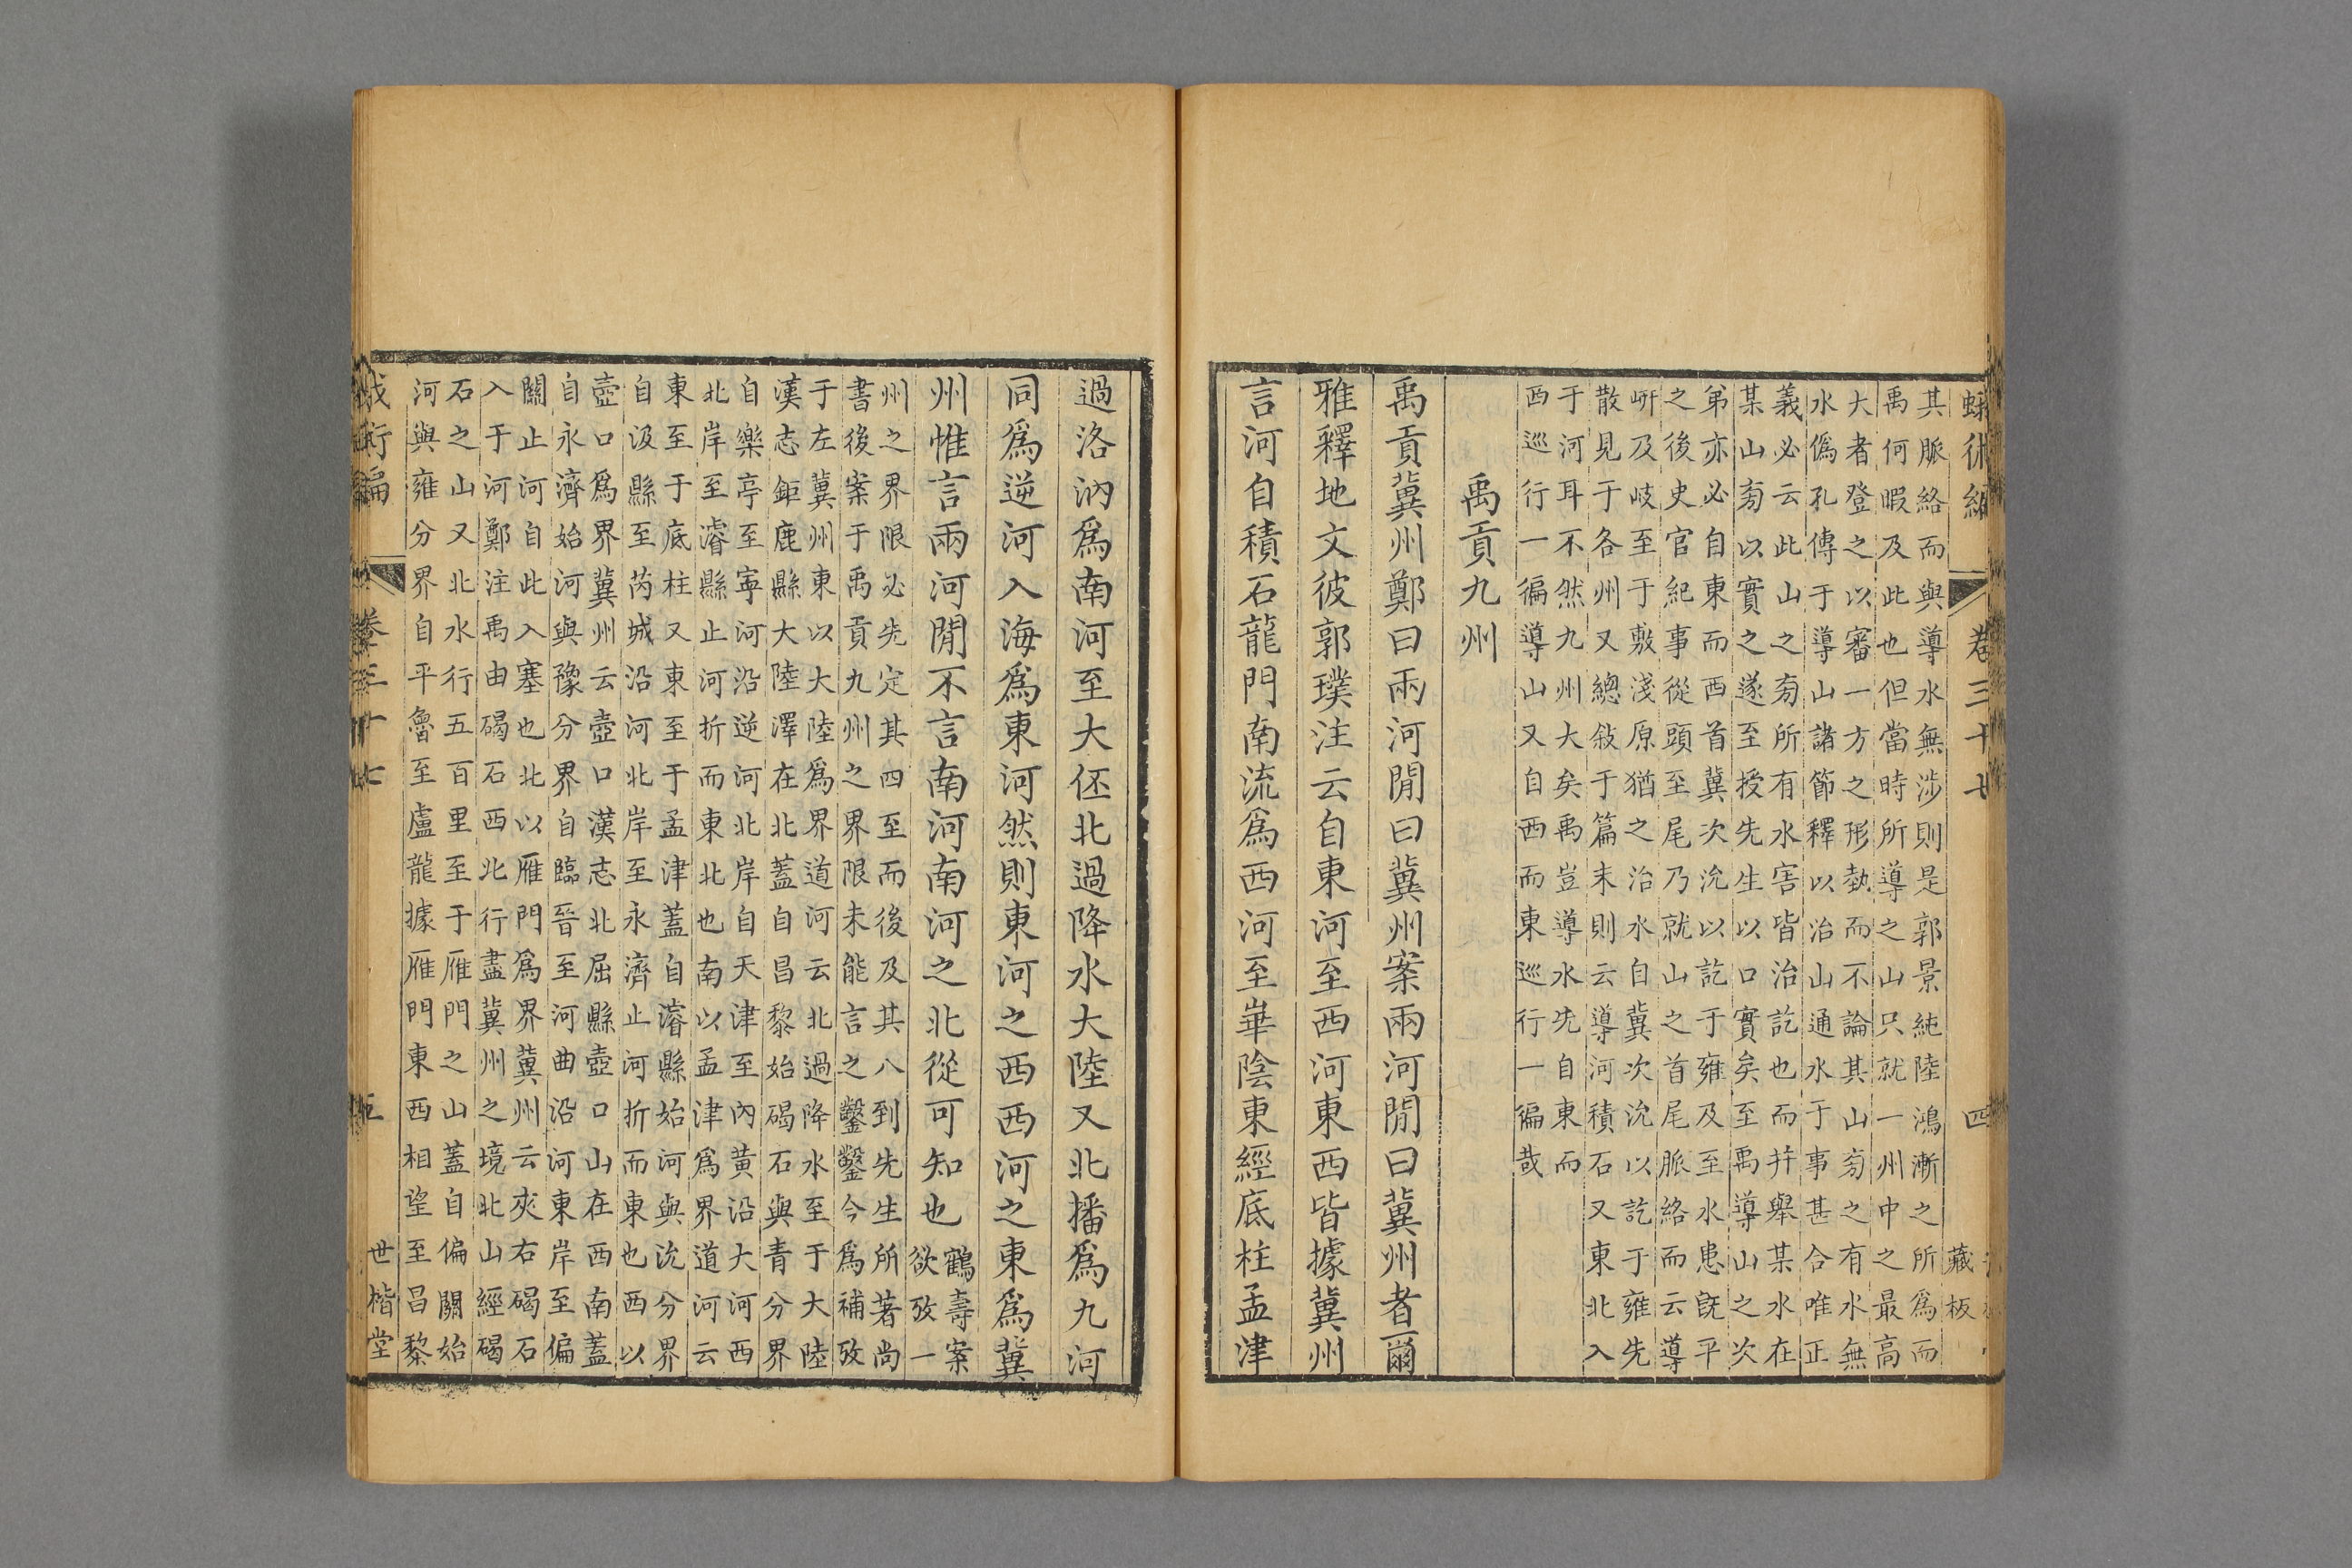 卷三十七
四
藏板
其脈絡而與導水無涉則是郭景純陸鴻漸之所爲而
禹何暇及此也但當時所導之山只就一州中之最高
大者登之以審一方之形埶而不論其山㫄之有水無
水僞孔傳于導山諸節釋以治山通水于事甚合唯正
義必云此山之㫄所有水害皆治訖也而幷舉某水在
某山㫄以實之遂至授先生以口實矣至禹導山之次
弟亦必自東而西首冀次沇以訖于雍及至水患旣平
之後史官紀事從頭至尾乃就山之首尾脈絡而云導
岍及岐至于敷淺原猶之治水自冀次沇以訖于雍先
散見于各州又總敍于篇末則云導河積石又東北入
于河耳不然九州大矣禹豈導水先自東而
西巡行一徧導山又自西而東巡行一徧哉
禹貢九州
禹貢冀州鄭曰兩河閒曰冀州案兩河閒曰冀州者爾
雅釋地文彼郭璞注云自東河至西河東西皆據冀州
言河自積石龍門南流爲西河至華陰東經底柱孟津
過洛汭爲南河至大伾北過降水大陸又北播爲九河
同爲逆河入海爲東河然則東河之西西河之東爲冀
州惟言兩河閒不言南河南河之北從可知也
鶴壽案
欲攷一
州之界限必先定其四至而後及其八到先生所著尚
書後案于禹貢九州之界限未能言之鑿鑿今爲補攷
于左冀州東以大陸爲界道河云北過降水至于大陸
漢志鉅鹿縣大陸澤在北蓋自昌黎始碣石與青分界
自樂亭至寧河沿逆河北岸自天津至內黃沿大河西
北岸至濬縣止河折而東北也南以孟津爲界道河云
東至于底柱又東至于孟津蓋自濬縣始河與沇分界
自汲縣至芮城沿河北岸至永濟止河折而東也西以
壺口爲界冀州云壺口漢志北屈縣壺口山在西南蓋
自永濟始河與豫分界自臨晉至河曲沿河東岸至偏
關止河自此入塞也北以雁門爲界冀州云夾右碣石
入于河鄭注禹由碣石西北行盡冀州之境北山經碣
石之山又北水行五百里至于雁門之山蓋自偏關始
河與雍分界自平魯至盧龍據雁門東西相望至昌黎
卷三十七
五
世楷堂